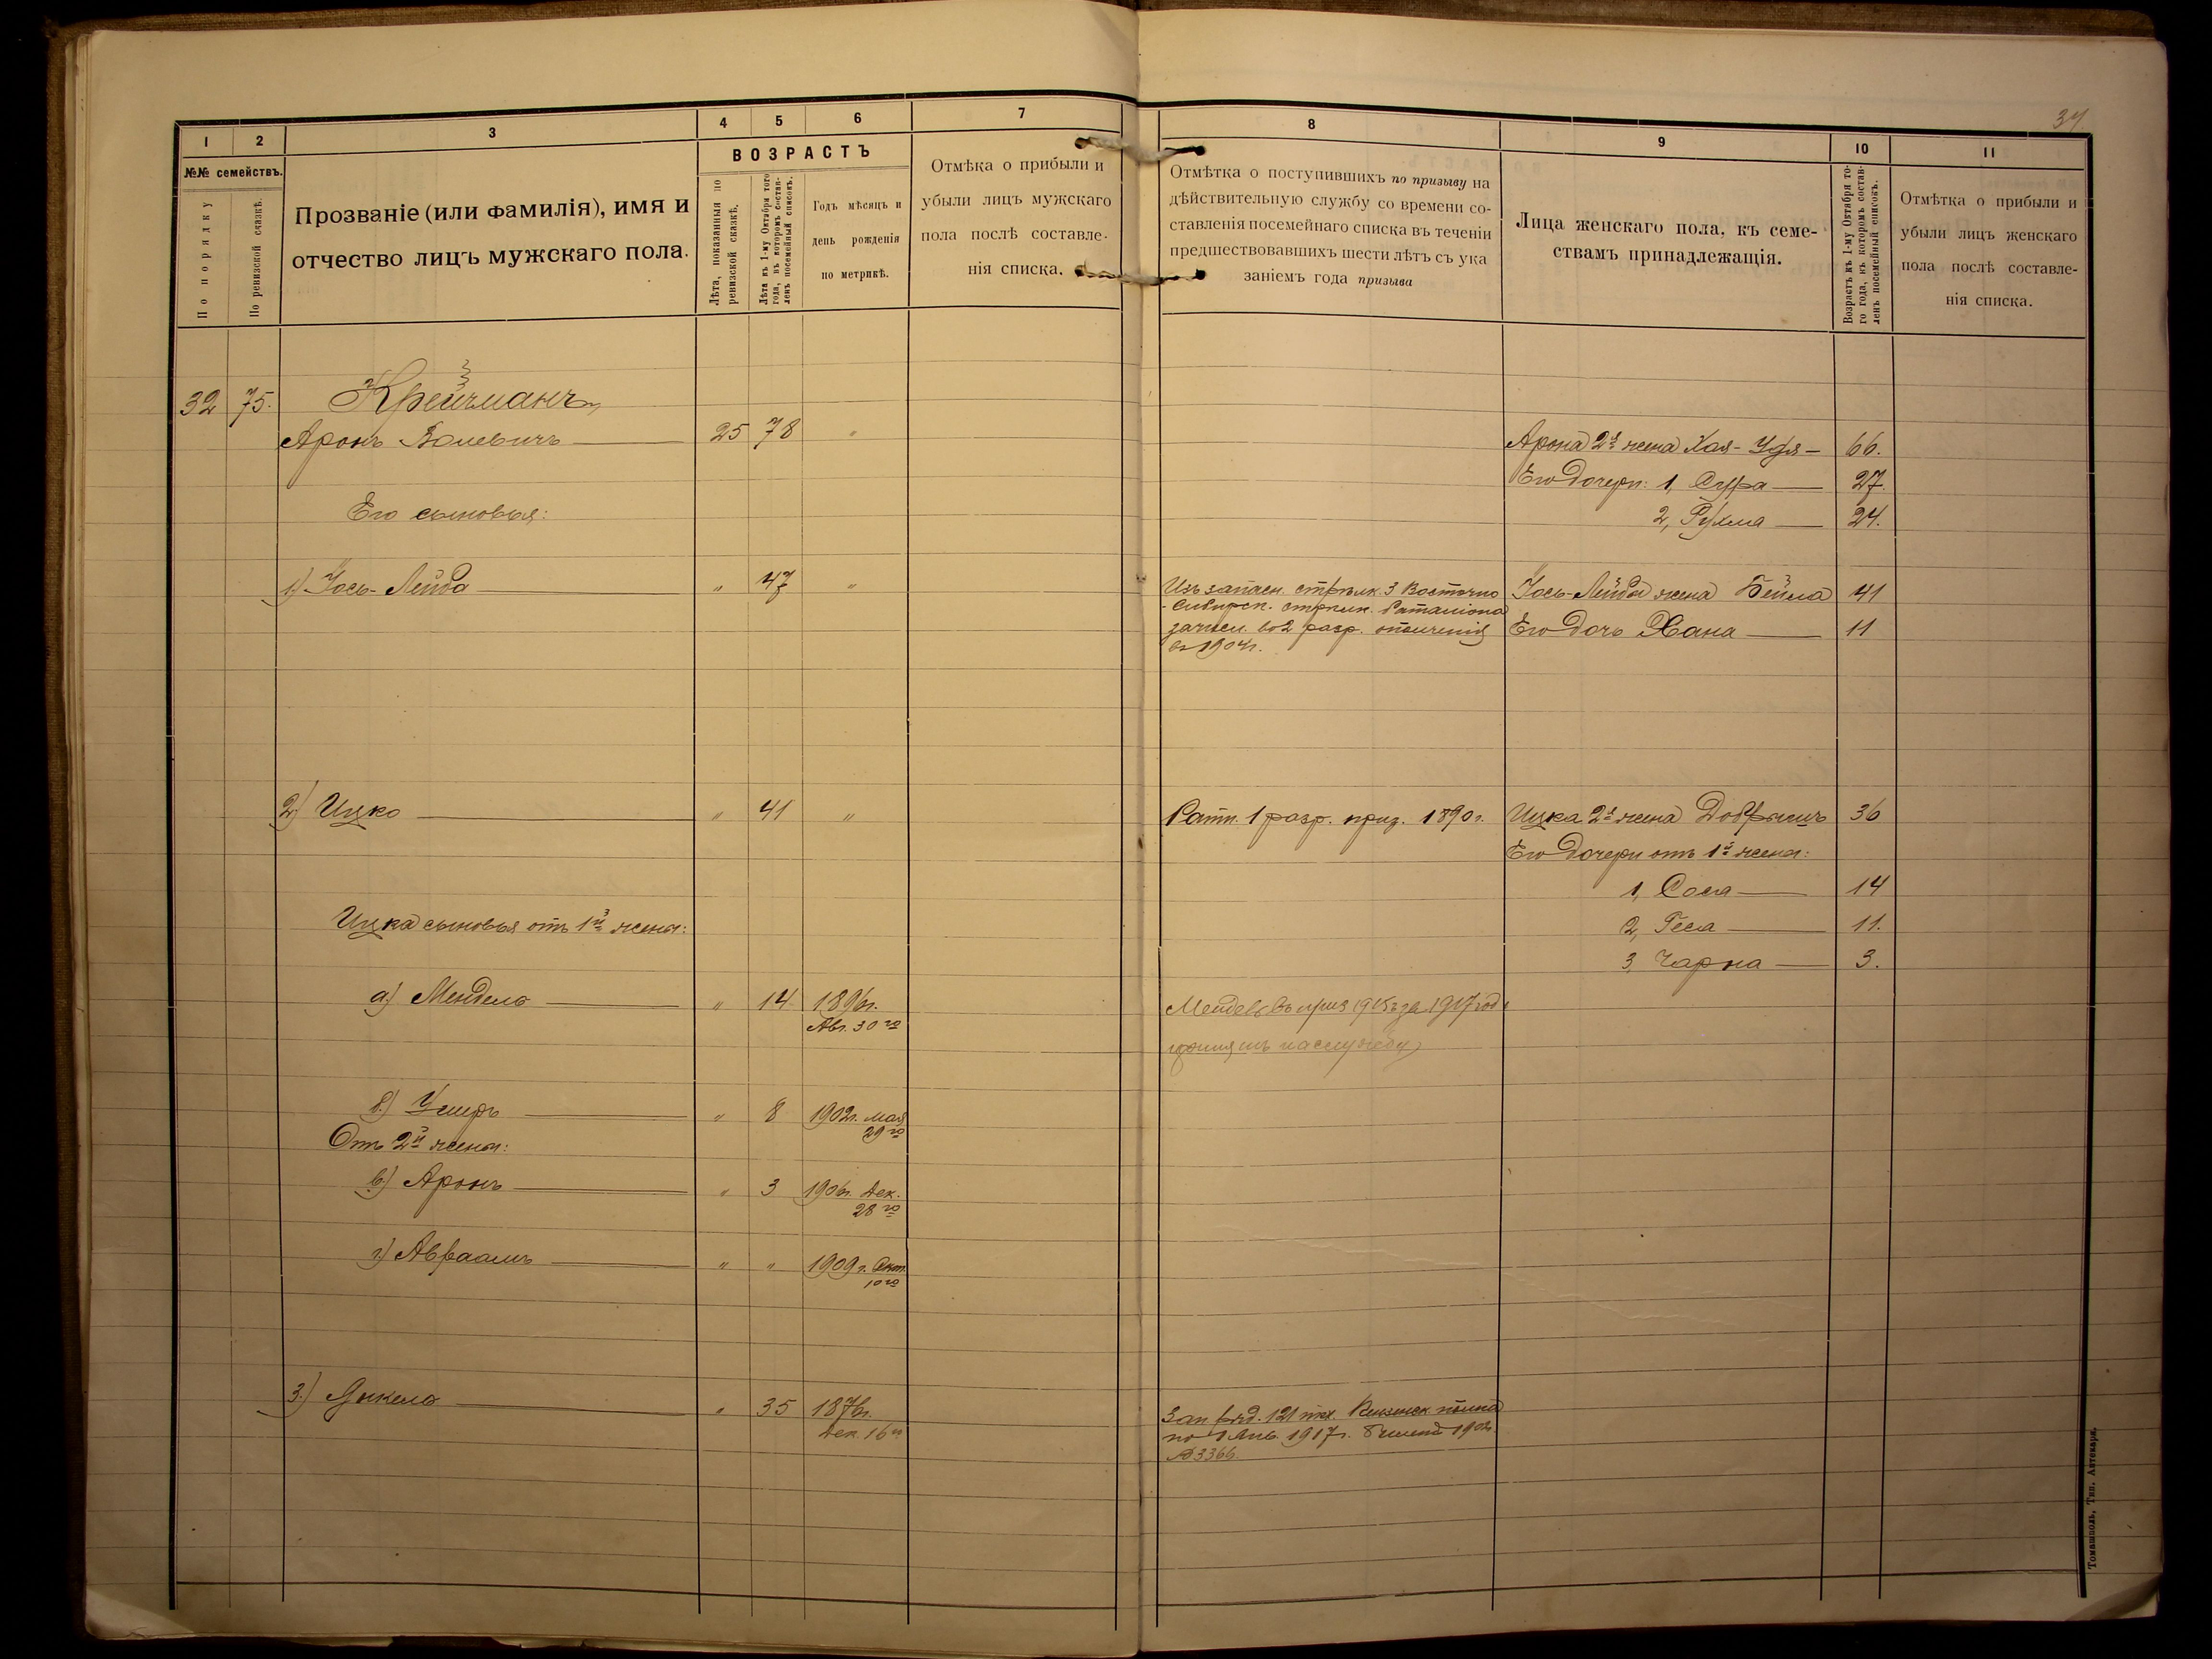 1
2
3
4
5
6
7
№№ семействъ.
По порядку
По ревизской сказкѣ.
Прозваніе (или фамилія), имя и
отчество лицъ мужскаго пола.
ВОЗРАСТЪ
Лѣта, показанныя по
ревизской сказкѣ.
Лѣта къ 1-му Октября того
года, въ которомъ состав-
ленъ посемейный списокъ.
Годъ мѣсяцъ и
день рожденія
по метрикѣ.
Отмѣка о прибыли и
убыли лицъ мужскаго
пола послѣ составле-
нія списка.
32 75. Крейчманъ
Аронъ Волевичъ 25 78 "
Его сыновья:
1) Іось-Лейба " 47 "
2) Ицко " 41 "
Ицка сыновья отъ 1й жены:
а) Мендель " 14 1896г.
Авг. 30го
б) Ушеръ " 8 1902г. Мая
29го
Отъ 2й жены:
в) Аронъ " 3 1906г. Дек.
28го
г) Авраамъ " " 1909г. Окт.
10го
3) Янкель " 35 1876г.
Дек. 16го
37
8
9
10
11
Отмѣтка о поступившихъ по призыву на
дѣйствительную службу со времени со-
ставленія посемейнаго списка въ теченіи
предшествовавшихъ шести лѣтъ съ ука
заніемъ года призыва
Лица женскаго пола, къ семе-
ствамъ принадлежащія.
Возрастъ къ 1-му Октября то-
го года, въ которомъ состав-
ленъ посемейный списокъ.
Отмѣтка о прибыли и
убыли лицъ женскаго
пола послѣ составле-
нія списка.
Арона 2я жена Хая-Удя 66.
Его дочери: 1, Сура 27.
2, Рухма 24.
Изъ запасн. стрѣлк. 3 Восточно
-Сибирск. стрѣлк. Баталіона
зачисл. во 2 разр. ополченія
въ 1904г.
Іось-Лейба жена Бейла 41
Его дочь Хана 11
Ратн. 1 разр. приз. 1890г. Ицка 2я жена Добрышъ 36
Его дочери отъ 1й жены:
1, Сося 14
2, Геся 11.
3, Чарна 3.
Мендель въ 1915 за 1917 годъ
принятъ на службу
Зап. ряд. 121 пѣх. Пензенск. полка
по 1 Янв. 1917г. 1902г.
№3366.
Томашполь, Тип. Аптекаря.